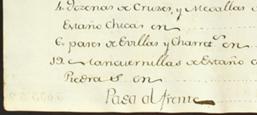 4. Dozenas de Cruses, y Medallas d
Estaño Chicas en
6. pares de Evillas y Charret.s en
12. Mancuernillas de Estaño c
Piedras en
Pasa al frente